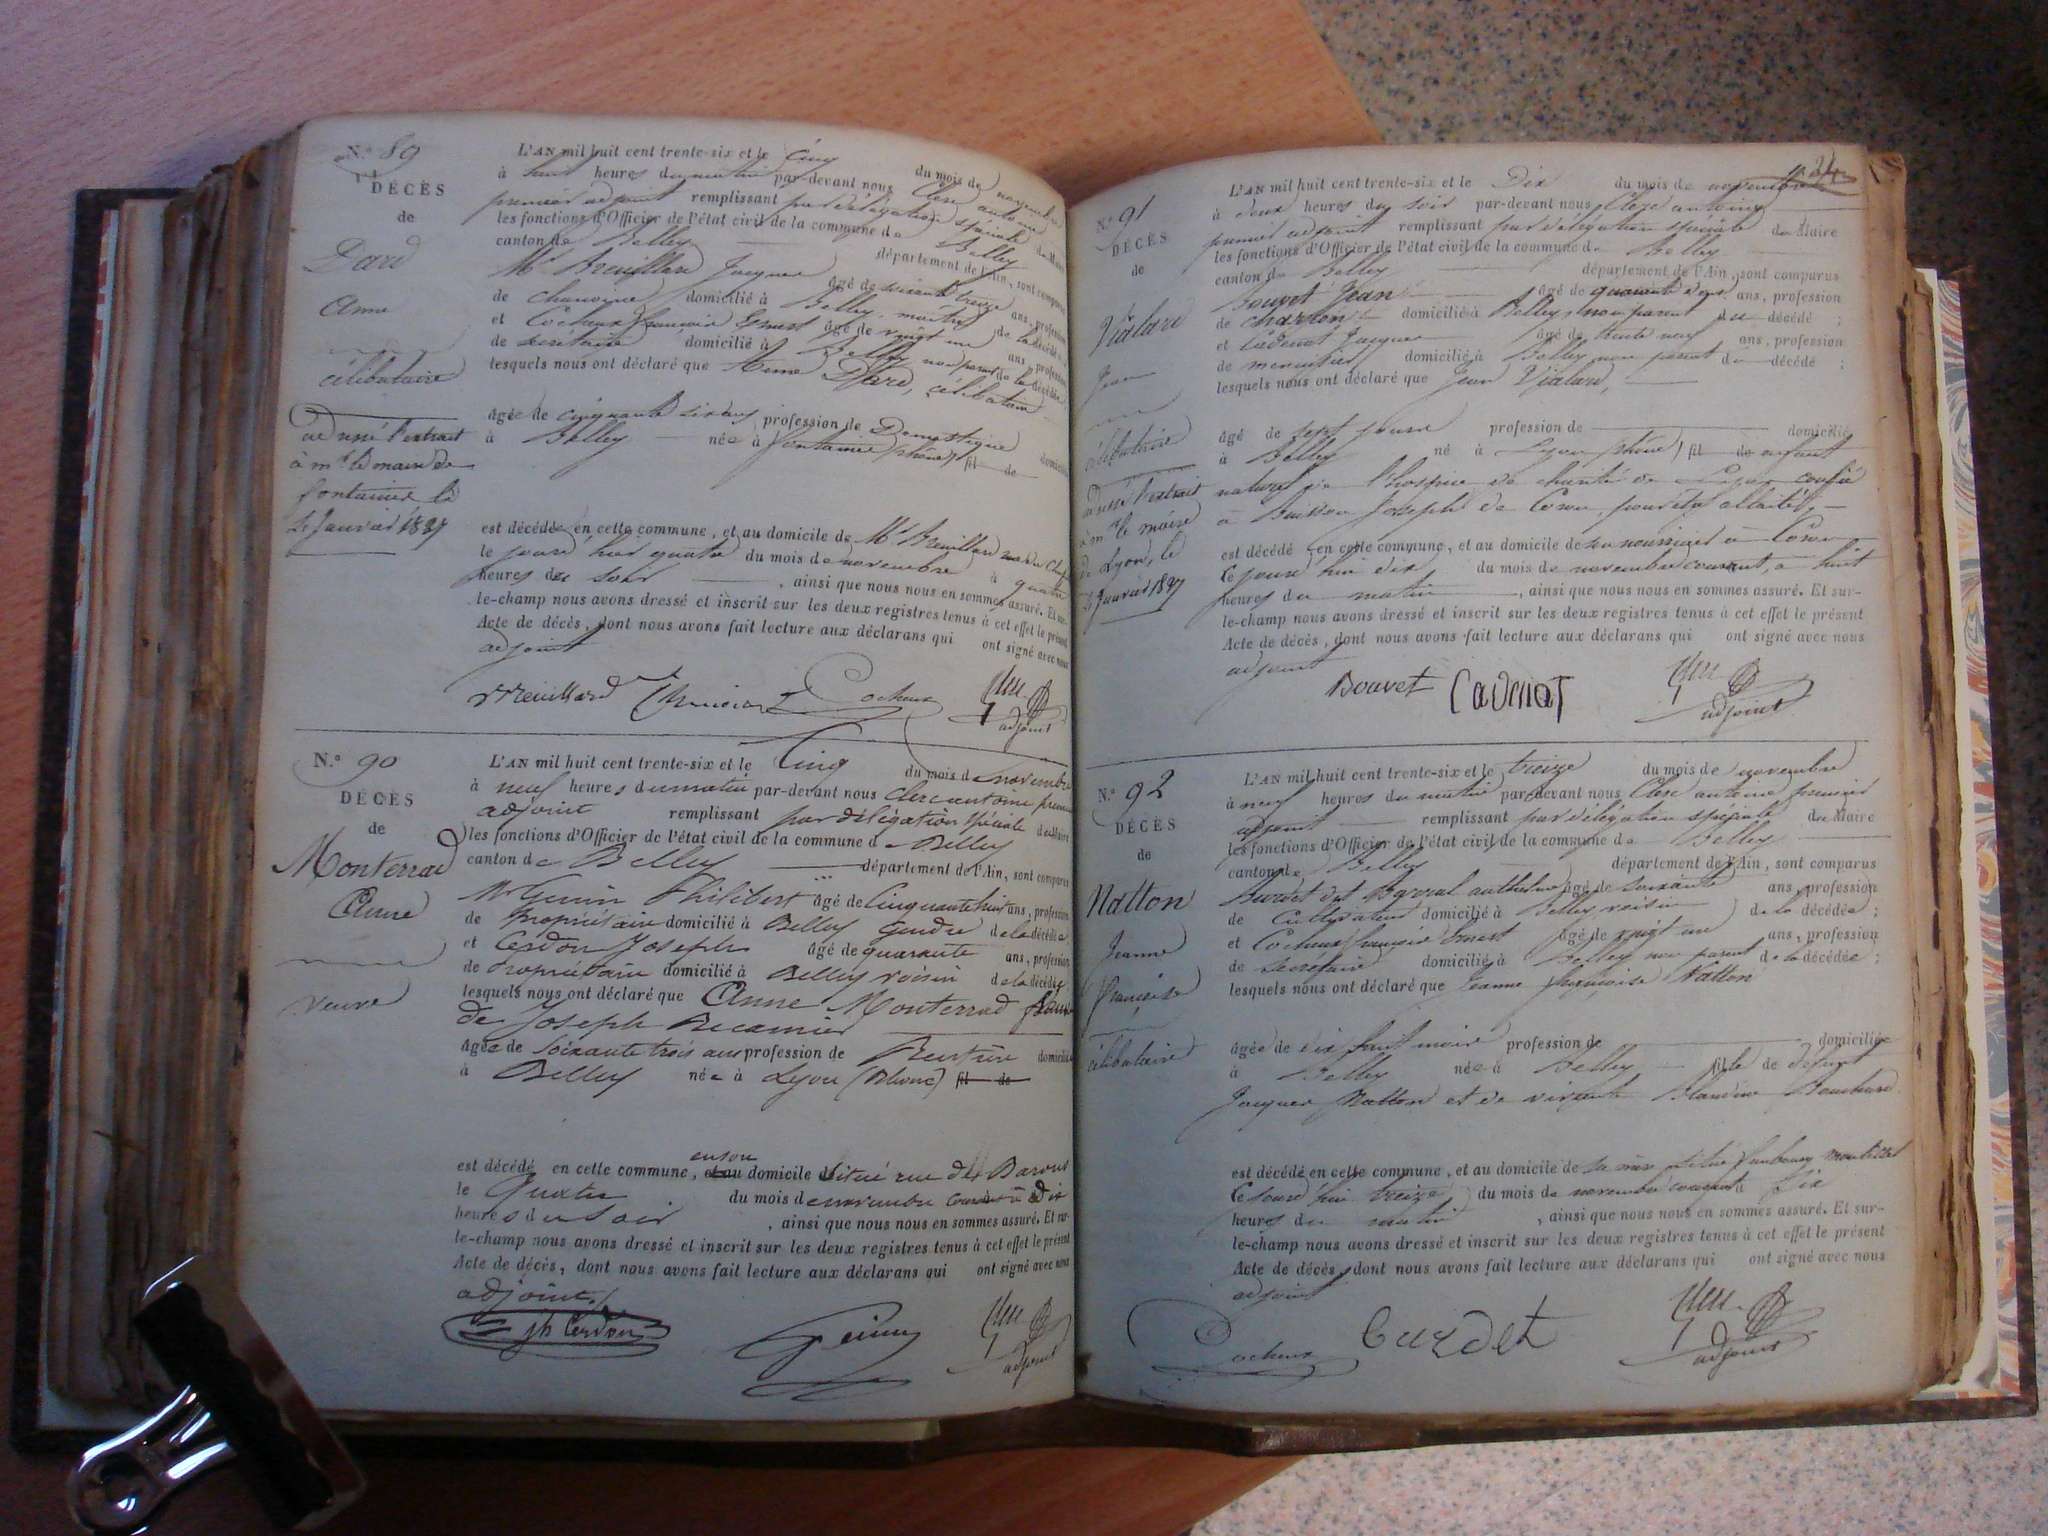 N.º 89
DÉCÈS
de
Dard
Anne
célibataire
adressé l'extrait
à mr le maire de
fontaines le
2 Janvier 1837
L'AN mil huit cent trente-six et le Cinq du mois de novembre
à huit heures du matin par-devant nous Clerc antoine
premier adjoint remplissant par délégation spéciale du Maire
les fonctions d'Officier de l'état civil de la commune de Belley
canton de Belley département de l'Ain, sont comparus
Mr Breuillard Jacques âgé de soixante treize ans, profession
de chanoine domicilié à Belley, maître de la décédée
et Cocheux françois Ernest âgé de vingt un ans, profession
de secrétaire domicilié à Belley non parent de la décédée
lesquels nous ont déclaré que Anne Dard, célibataire
âgée de cinquante six ans profession de Domestique domiciliée
à Belley née à fontaines (rhône) fil de
est décédée en cette commune, et au domicile de Mr Breuillard
le jourd'hui quatre du mois de novembre à quatre
heures du soir, ainsi que nous nous en sommes assuré. Et sur-
le-champ nous avons dressé et inscrit sur les deux registres tenus à cet effet le présent
Acte de décès, dont nous avons fait lecture aux déclarans qui ont signé avec nous
adjoint
Breuillard Cocheux Clerc
adjoint
N.º 90
DÉCÈS
de
Monterrad
Anne
veuve
L'AN mil huit cent trente-six et le Cinq du mois de novembre
à neuf heures du matin par-devant nous Clerc antoine premier
adjoint remplissant par délégation spéciale du Maire
les fonctions d'Officier de l'état civil de la commune de Belley
canton de Belley département de l'Ain, sont comparus
Mr Genin Philibert âgé de Cinquante huit ans, profession
de Propriétaire domicilié à Belley Gendre de la décédée
et Cerdon Joseph âgé de quarante ans, profession
de Propriétaire domicilié à Belley voisin de la décédée
lesquels nous ont déclaré que Anne Monterrad veuve
de Joseph Recamier
âgée de soixante trois ans profession de Rentière domiciliée
à Belley née à Lyon (Rhône) fil de
est décédé en cette commune, en son domicile situé rue des Barons
le Quatre du mois de novembre courant à dix
heures du soir, ainsi que nous nous en sommes assuré. Et sur-
le-champ nous avons dressé et inscrit sur les deux registres tenus à cet effet le présent
Acte de décès, dont nous avons fait lecture aux déclarans qui ont signé avec nous
adjoint.
jh Cerdon Genin Clerc
adjoint
N.º 91
DÉCÈS
de
Vialard
Jean
célibataire
adressé l'extrait
à mr le maire
de Lyon, le
2 Janvier 1837
L'AN mil huit cent trente-six et le Dix du mois de novembre
à deux heures du soir par-devant nous Clerc antoine
premier adjoint remplissant par délégation spéciale du Maire
les fonctions d'Officier de l'état civil de la commune de Belley
canton de Belley département de l'Ain, sont comparus
Bouvet Jean âgé de quarante deux ans, profession
de charron domicilié à Belley, non parent du décédé ;
et Cadenat Jacques âgé de trente neuf ans, profession
de menuisier domicilié à Belley non parent du décédé ;
lesquels nous ont déclaré que Jean Vialard,
âgé de sept jours profession de domicilié
à Belley né à Lyon (rhône) fil de enfant
naturel de l'hospice de charité de Lyon confié
à Joseph de Coron, pour être allaité,
est décédé en cette commune, et au domicile de son nourricier à Coron
le jourd'hui dix du mois de novembre courant, à huit
heures du matin, ainsi que nous nous en sommes assuré. Et sur-
le-champ nous avons dressé et inscrit sur les deux registres tenus à cet effet le présent
Acte de décès, dont nous avons fait lecture aux déclarans qui ont signé avec nous
adjoint
Bouvet Cadenat Clerc
adjoint
N.º 92
DÉCÈS
de
Natton
Jeanne
françoise
célibataire
L'AN mil huit cent trente-six et le treize du mois de novembre
à neuf heures du matin par-devant nous Clerc antoine premier
adjoint remplissant par délégation spéciale du Maire
les fonctions d'Officier de l'état civil de la commune de Belley
canton de Belley département de l'Ain, sont comparus
Burdet anthelme âgé de soixante ans, profession
de Cultivateur domicilié à Belley, voisin de la décédée ;
et Cocheux françois Ernest âgé de vingt un ans, profession
de secrétaire domicilié à Belley non parent de la décédée ;
lesquels nous ont déclaré que Jeanne françoise Natton
âgée de dix huit mois profession de domiciliée
à Belley née à Belley fille de défunt
Jacques Natton et de vivante Blandine
est décédée en cette commune, et au domicile de sa mère situé faubourg
le jourd'hui treize du mois de novembre courant à six
heures du matin, ainsi que nous nous en sommes assuré. Et sur-
le-champ nous avons dressé et inscrit sur les deux registres tenus à cet effet le présent
Acte de décès, dont nous avons fait lecture aux déclarans qui ont signé avec nous
adjoint
Cocheux Burdet Clerc
adjoint